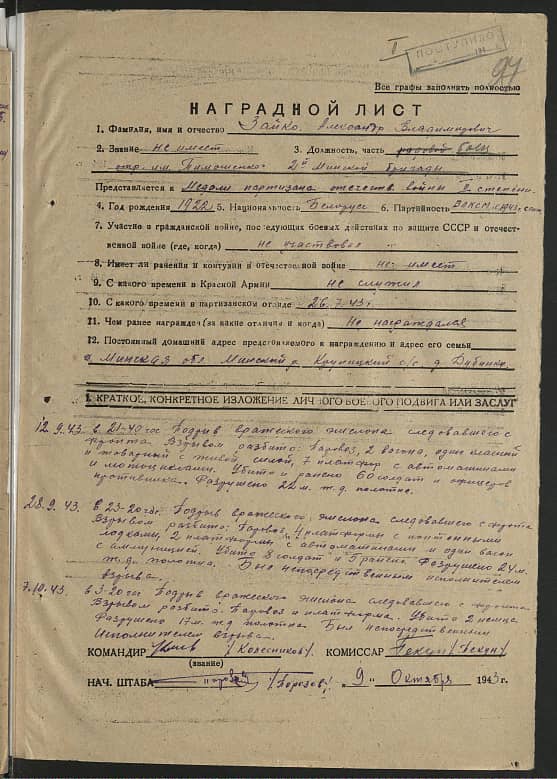 I
ПОСТУПИЛО
97
Все графы заполнять полностью
НАГРАДНОЙ ЛИСТ
1. Фамилия, имя и отчество Зайко Александр Владимирович
2. Звание не имеет 3. Должность, часть рядовой боец
отр. им. Тимошенко 2й Минской бригады
Представляется к Медали партизана отечеств. войны 2 степени.
4. Год рождения 1922 5. Национальность Белорус 6. Партийность ВЛКСМ с
7. Участие в гражданской войне, последующих боевых действиях по защите СССР и отечест-
венной войне (где, когда) не участвовал
8. Имеет ли ранения и контузии в отечественной войне не имеет
9. С какого времени в Красной Армии не служил
10. С какого времени в партизанском отряде 26.7.43г
11. Чем ранее награжден (за какие отличия и когда) Не награждался
12. Постоянный домашний адрес представляемого к награждению и адрес его семьи
Минская обл Минский р Крупицкий с/с д
I. КРАТКОЕ, КОНКРЕТНОЕ ИЗЛОЖЕНИЕ ЛИЧНОГО БОЕВОГО ПОДВИГА ИЛИ ЗАСЛУГ
12.9.43. в 21-40 час Подрыв вражеского эшелона следовавшего с
фронта Взрывом разбито: Паровоз, 2 вагона, один классный
и товарный с живой силой, 7 платформ с автомашинами
и мотоциклами. Убито и ранено 60 солдат и офицеров
противника. Разрушено 22 м. ж.д. полотна.
28.9.43. В 23-20 час Подрыв вражеского эшелона следовавшего с фронта
Взрывом разбито: Паровоз, 4 платформы с понтонными
лодками, 2 платформы с автомашинами и один вагон
с аммуницией. Убито 8 солдат и Разрушено 24 м.
ж.д. полотна. Был непосредственным исполнителем
взрыва.
7.10.43. в 3-20 час Подрыв вражеского эшелона следовавшего с фронта
Взрывом разбито: Паровоз и платформа. Убито 2 немца
Разрушено 17 м. ж.д полотна Был непосредственным
Исполнителем взрыва.
КОМАНДИР /Колесников/ КОМИССАР /Пекун/
(звание)
НАЧ. ШТАБА /Порозов/ „9" Октября 1943 г.